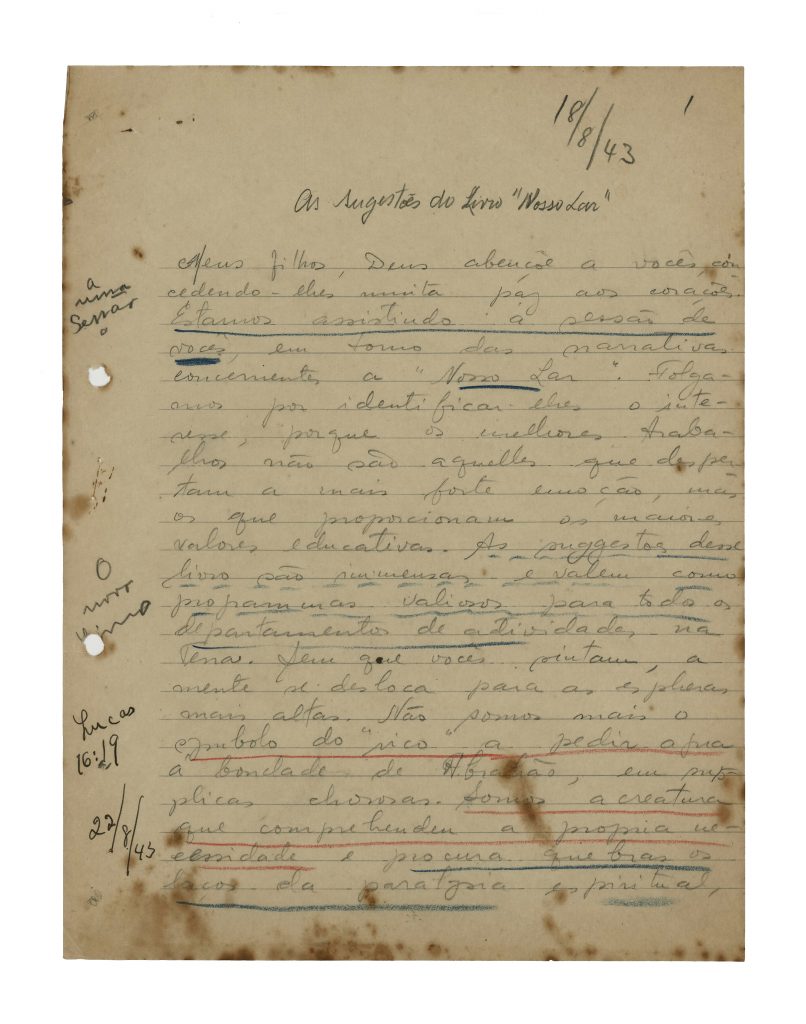 18/8/43
1
As sugestões do Livro "Nosso Lar"
Meus filhos, Deus abençôe a vocês, con-
cedendo-lhes muita paz aos corações.
Estamos assistindo á sessão de
vocês, em torno das narrativas
concernentes a "Nosso Lar". Folga-
mos por identificar-lhes o inte-
resse, porque os melhores traba-
lhos não são aquelles que desper-
tam a mais forte emoção, mas
os que proporcionam os maiores
valores educativos. As suggestões desse
livro são immensas e valem como
programmas valiosos para todos os
departamentos de actividades na
Terra. Sem que vocês sintam, a
mente se desloca para as espheras
mais altas. Não somos mais o
symbolo do "rico" a pedir agua
á bondade de Abrahão, em sup-
plicas chorosas. Somos a creatura
que comprehendeu a propria ne-
cessidade e procura quebrar os
laços da paralysia espiritual,
a
uma
Sessão
O
novo
Lucas
16:19
22/8/43